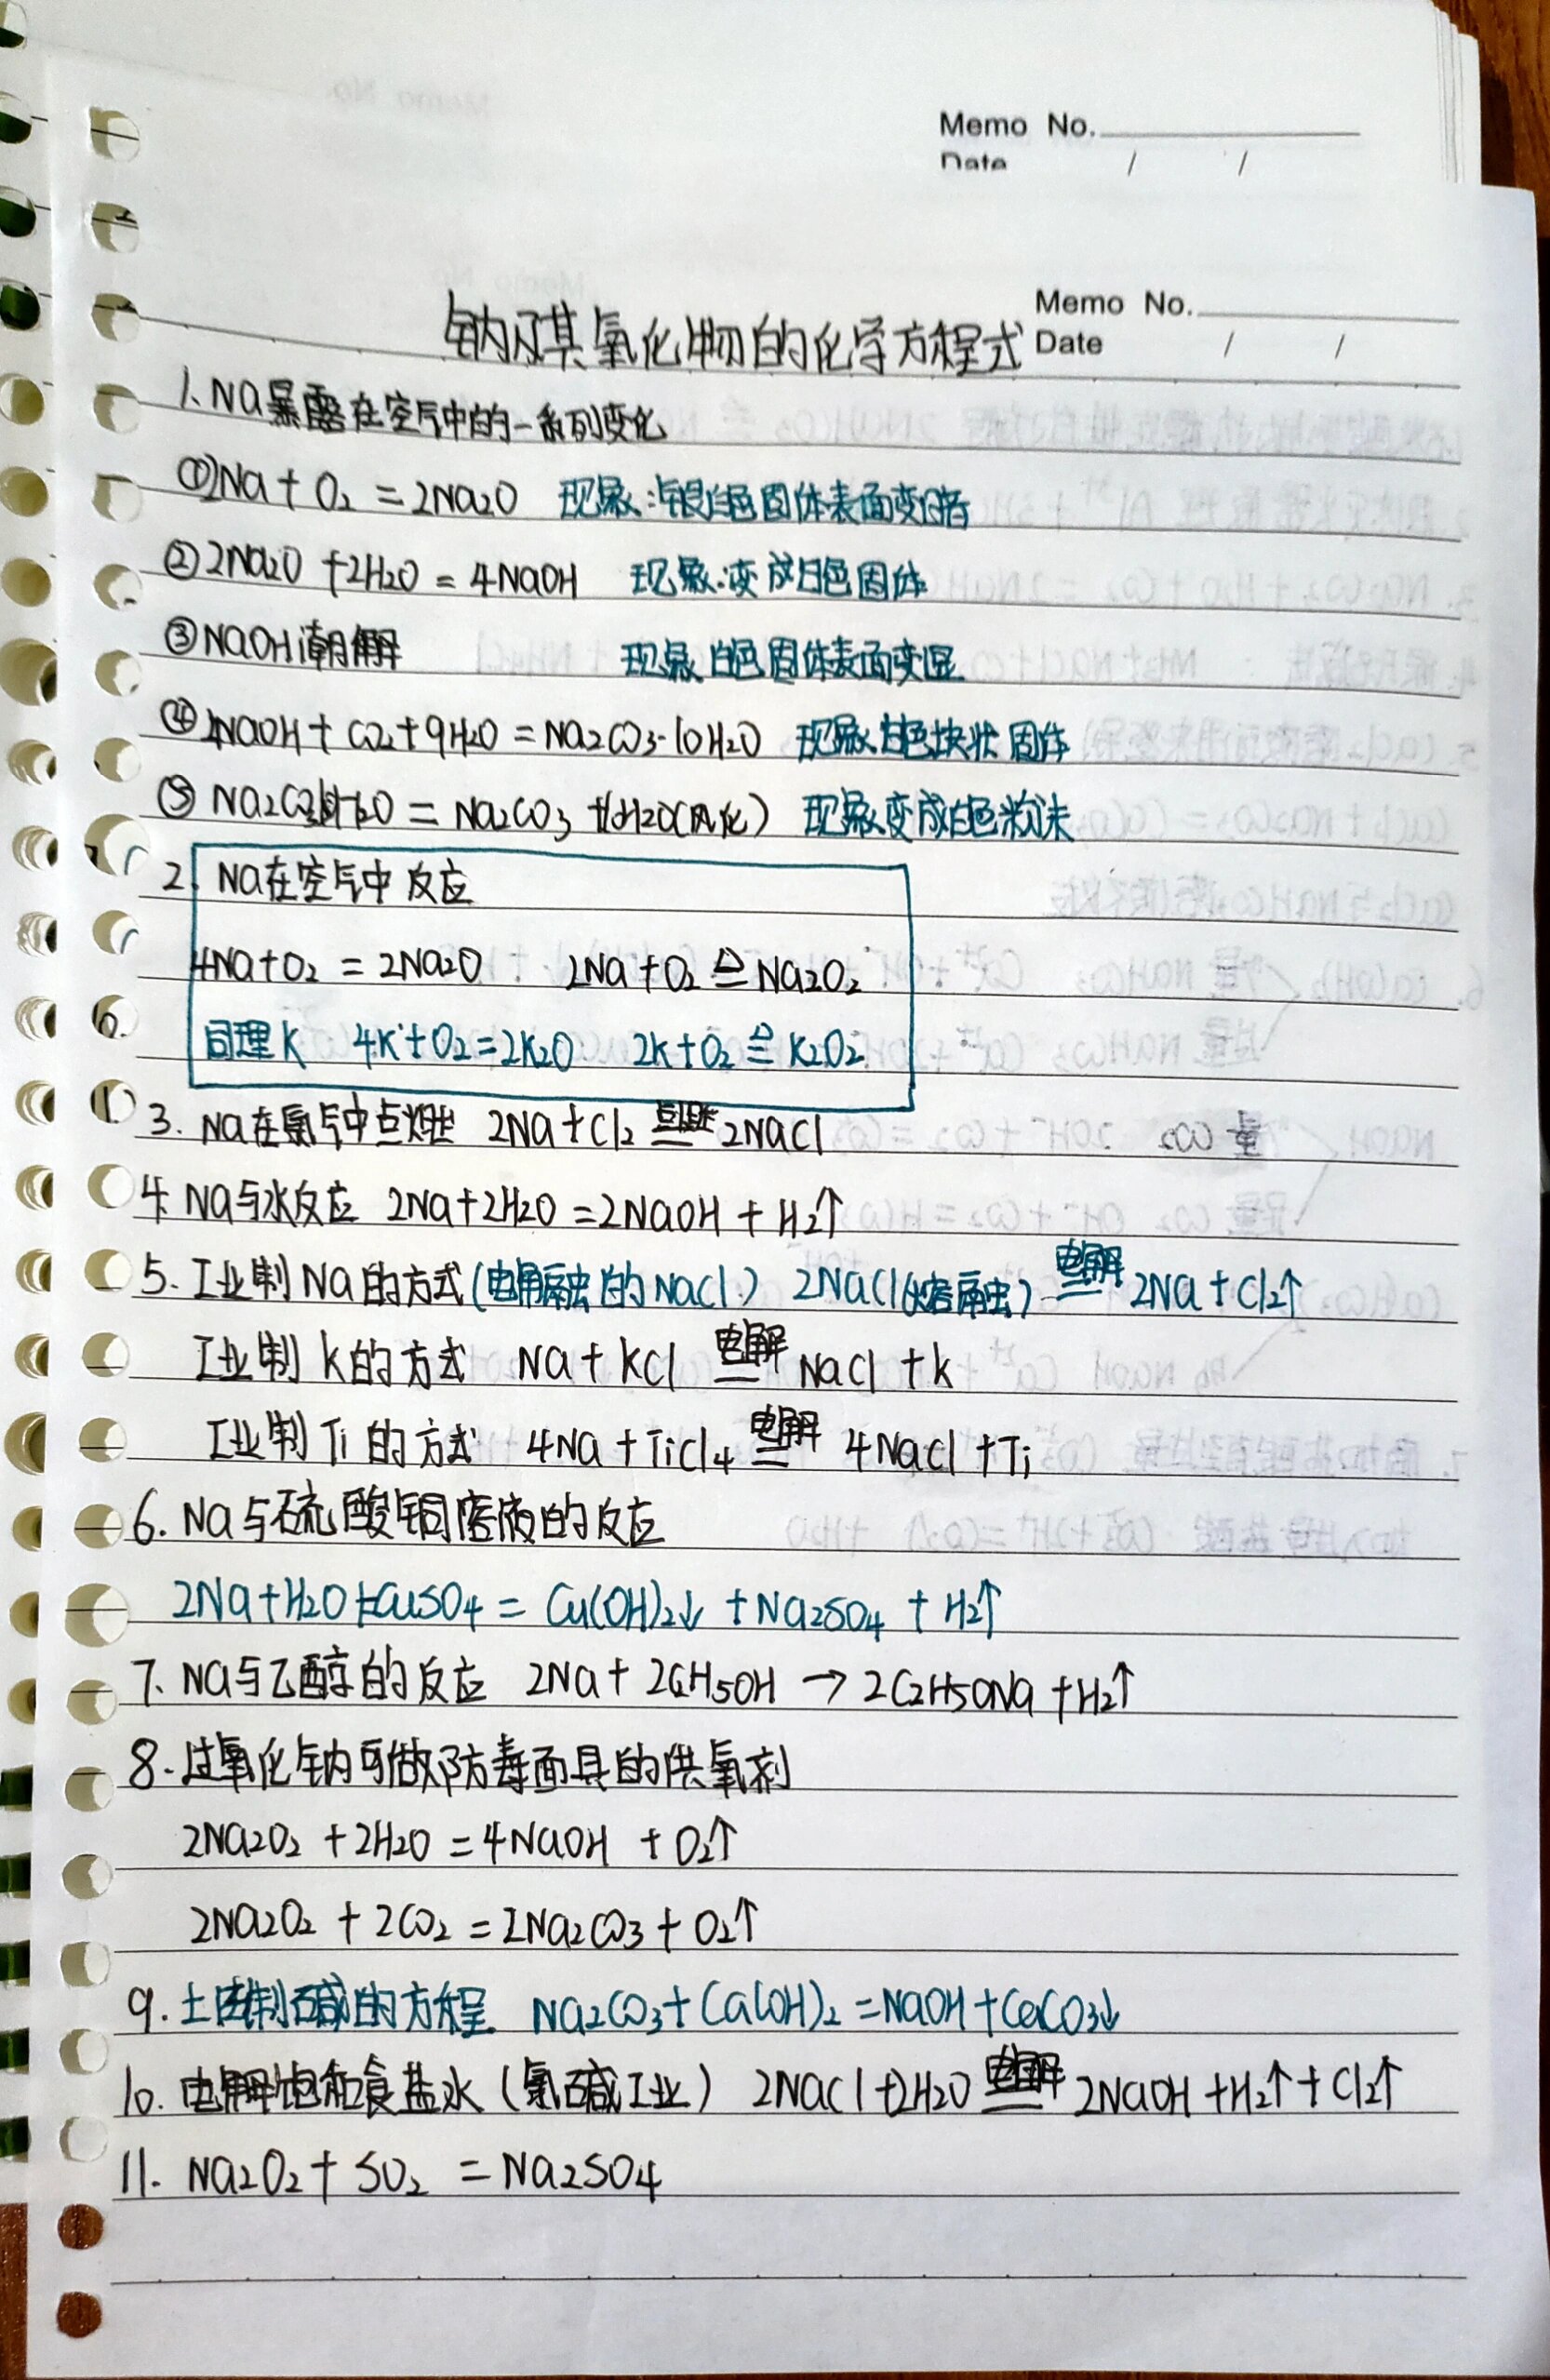 Memo No.
Date / /
Memo No.
Date / /
钠及其氧化物的化学方程式
1. Na暴露在空气中的一系列变化
① Na + O2 = 2Na2O 现象:银白色固体表面变暗
② 2Na2O + 2H2O = 4NaOH 现象:变成白色固体
③ NaOH潮解 现象 白色固体表面变湿
④ 2NaOH + CO2 + 9H2O = Na2CO3·10H2O 现象 白色块状固体
⑤ Na2CO3·10H2O = Na2CO3 + 10H2O(风化) 现象 变成白色粉末
2. Na在空气中反应
4Na + O2 = 2Na2O 2Na + O2 ≜ Na2O2
同理K 4K + O2 = 2K2O 2K + O2 ≜ K2O2
3. Na在氯气中点燃 2Na + Cl2 点燃 2NaCl
4. Na与水反应 2Na + 2H2O = 2NaOH + H2↑
5. 工业制Na的方式(电解融的NaCl) 2NaCl(熔融) 电解 2Na + Cl2↑
工业制K的方式 Na + KCl 电解 NaCl + K
工业制Ti的方式 4Na + TiCl4 电解 4NaCl + Ti
6. Na与硫酸铜溶液的反应
2Na + H2O + CuSO4 = Cu(OH)2↓ + Na2SO4 + H2↑
7. Na与乙醇的反应 2Na + 2C2H5OH → 2C2H5ONa + H2↑
8. 过氧化钠可做防毒面具的供氧剂
2Na2O2 + 2H2O = 4NaOH + O2↑
2Na2O2 + 2CO2 = 2Na2CO3 + O2↑
9. 土法制碱的方程 Na2CO3 + Ca(OH)2 = NaOH + CaCO3↓
10. 电解饱和食盐水(氯碱工业) 2NaCl + 2H2O 电解 2NaOH + H2↑ + Cl2↑
11. Na2O2 + SO2 = Na2SO4